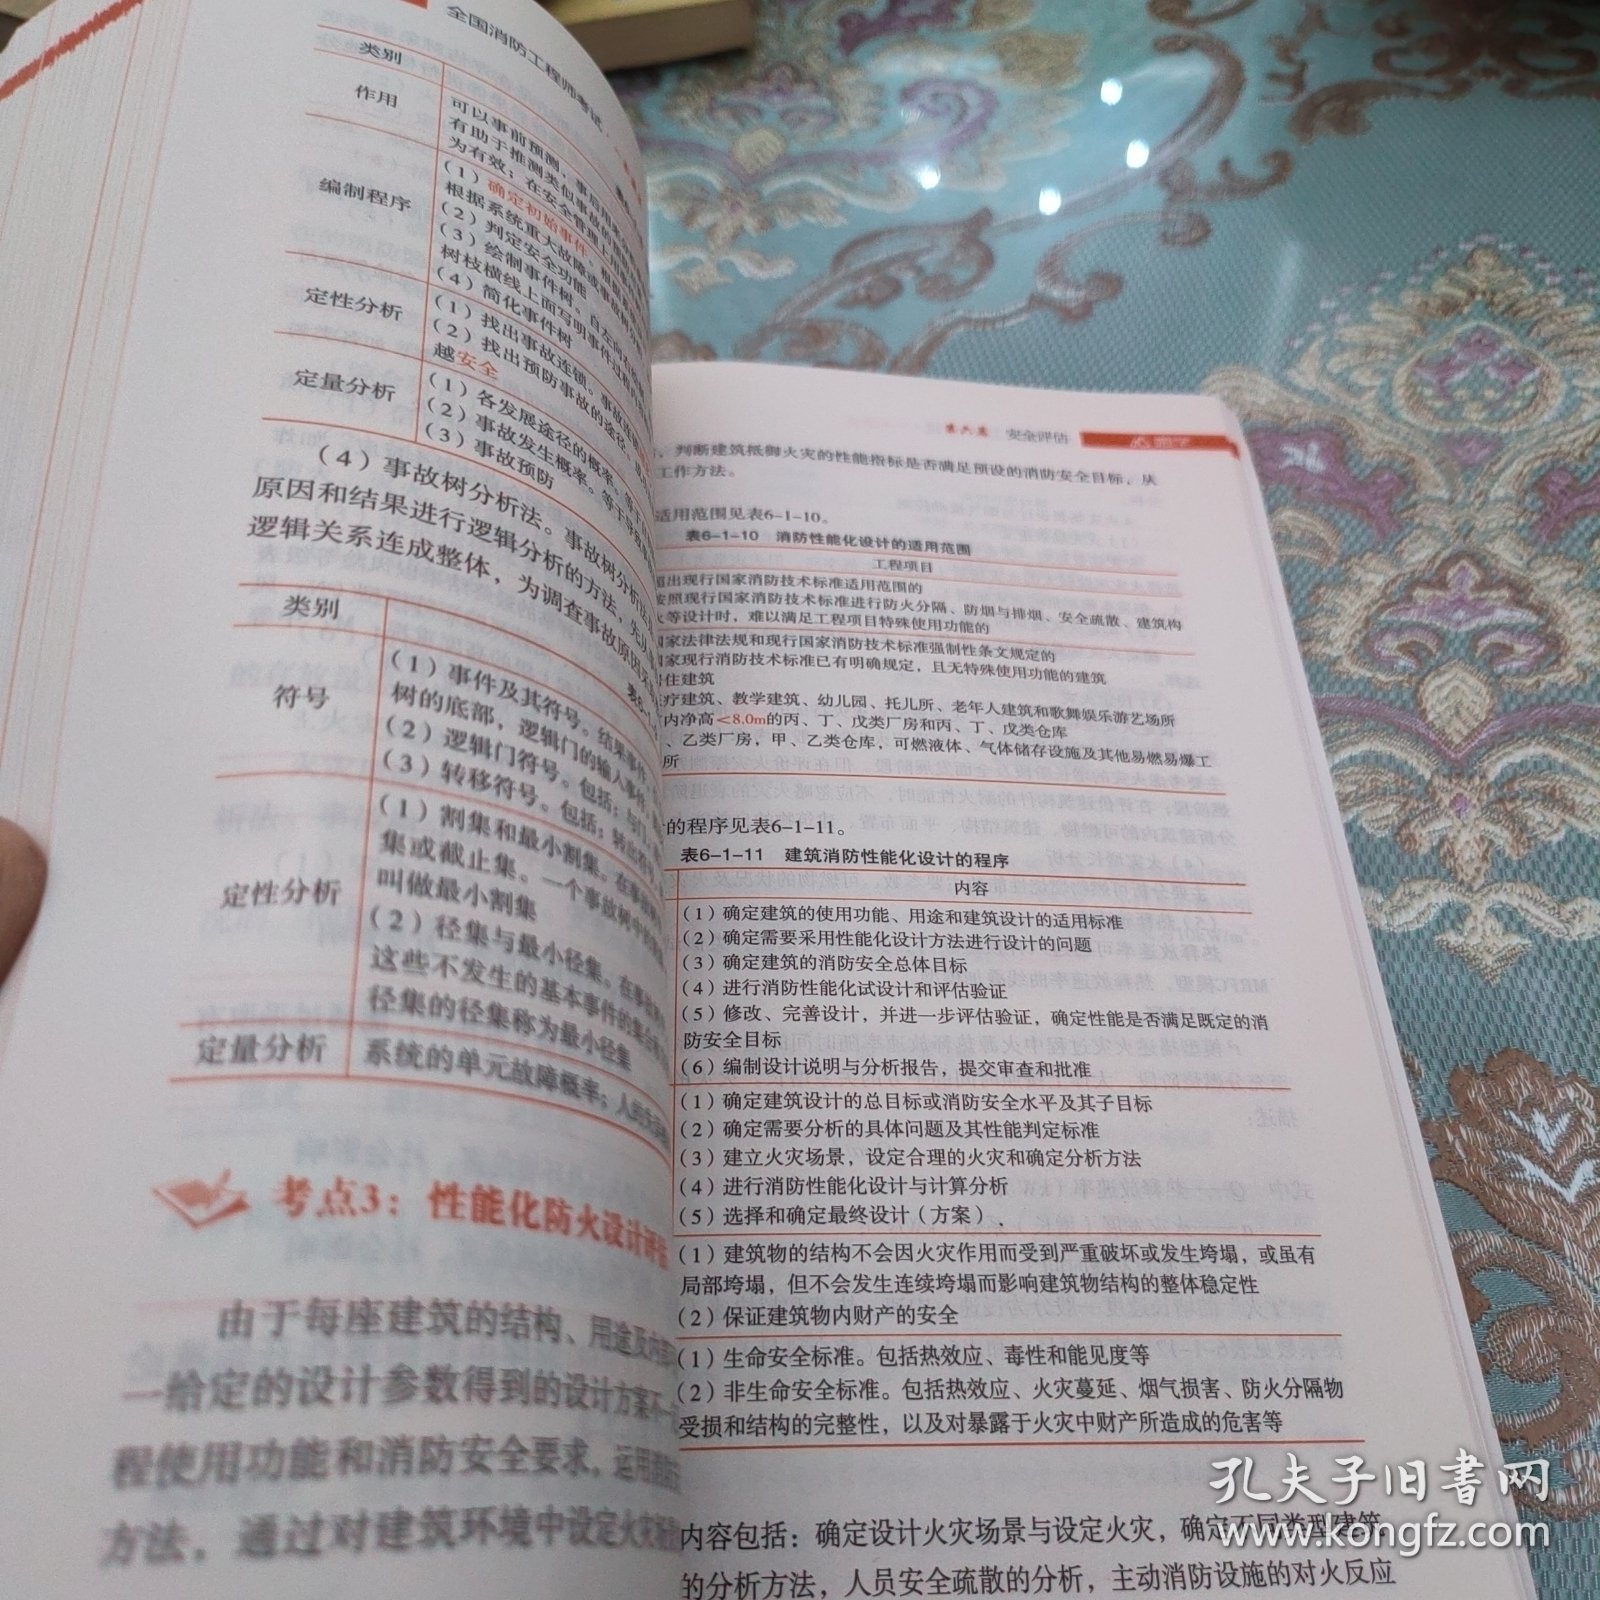 全国消防工程师考试
类别
作用
可以事前预测，事后用
有助于推测类似事故的
为有效；在安全管理上用
编制程序
（1）确定初始事件。根据
根据系统重大故障或事故树分
（2）判定安全功能
（3）绘制事件树。自左向右
树枝横线上面写明事件过程内
（4）简化事件树
定性分析
（1）找出事故连锁。事故连
（2）找出预防事故的途径。
越安全
定量分析
（1）各发展途径的概率。等于
（2）事故发生概率。等于导致
（3）事故预防
（4）事故树分析法。事故树分析
原因和结果进行逻辑分析的方法，先从
逻辑关系连成整体，为调查事故原因
类别
符号
（1）事件及其符号。结果事件
树的底部，逻辑门的输入事件
（2）逻辑门符号。包括：与门
（3）转移符号。包括：转出符号
定性分析
（1）割集和最小割集。在事故
集或截止集。一个事故树中的
叫做最小割集
（2）径集与最小径集。在事故
这些不发生的基本事件的集合
径集的径集称为最小径集
定量分析
系统的单元故障概率；人的失误
考点3：性能化防火设计评估
由于每座建筑的结构、用途及内部
一给定的设计参数得到的设计方案不一
程使用功能和消防安全要求，运用消防
方法，通过对建筑环境中设定火灾
第六篇 安全评估
、判断建筑抵御火灾的性能指标是否满足预设的消防安全目标，从
工作方法。
适用范围见表6-1-10。
表6-1-10 消防性能化设计的适用范围
工程项目
超出现行国家消防技术标准适用范围的
按照现行国家消防技术标准进行防火分隔、防烟与排烟、安全疏散、建筑构
火等设计时，难以满足工程项目特殊使用功能的
国家法律法规和现行国家消防技术标准强制性条文规定的
国家现行消防技术标准已有明确规定，且无特殊使用功能的建筑
居住建筑
医疗建筑、教学建筑、幼儿园、托儿所、老年人建筑和歌舞娱乐游艺场所
室内净高＜8.0m的丙、丁、戊类厂房和丙、丁、戊类仓库
、乙类厂房，甲、乙类仓库，可燃液体、气体储存设施及其他易燃易爆工
所
计的程序见表6-1-11。
表6-1-11 建筑消防性能化设计的程序
内容
（1）确定建筑的使用功能、用途和建筑设计的适用标准
（2）确定需要采用性能化设计方法进行设计的问题
（3）确定建筑的消防安全总体目标
（4）进行消防性能化试设计和评估验证
（5）修改、完善设计，并进一步评估验证，确定性能是否满足既定的消
防安全目标
（6）编制设计说明与分析报告，提交审查和批准
（1）确定建筑设计的总目标或消防安全水平及其子目标
（2）确定需要分析的具体问题及其性能判定标准
（3）建立火灾场景，设定合理的火灾和确定分析方法
（4）进行消防性能化设计与计算分析
（5）选择和确定最终设计（方案）
（1）建筑物的结构不会因火灾作用而受到严重破坏或发生垮塌，或虽有
局部垮塌，但不会发生连续垮塌而影响建筑物结构的整体稳定性
（2）保证建筑物内财产的安全
（1）生命安全标准。包括热效应、毒性和能见度等
（2）非生命安全标准。包括热效应、火灾蔓延、烟气损害、防火分隔物
受损和结构的完整性，以及对暴露于火灾中财产所造成的危害等
内容包括：确定设计火灾场景与设定火灾，确定不同类型建筑
的分析方法，人员安全疏散的分析，主动消防设施的对火反应
孔夫子旧书网
www.kongfz.com